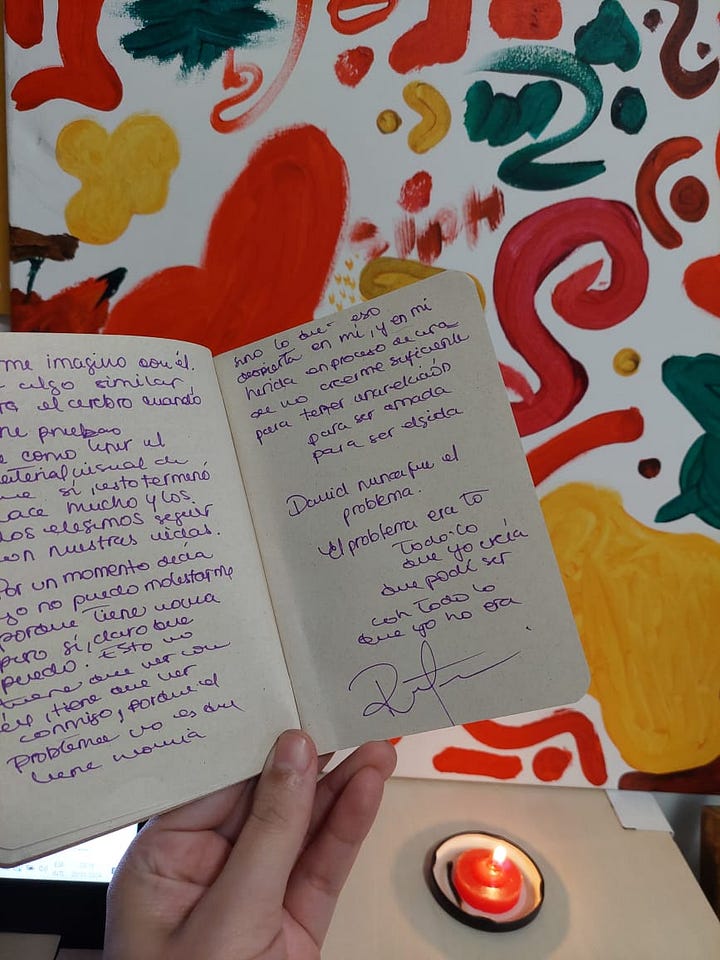 me imagino con él.
algo similar
el cerebro cuando
pruebas
como tener el
material visual de
que sí, esto terminó
hace mucho y los
dos elegimos seguir
con nuestras vidas.
Por un momento decía
yo no puedo molestarme
porque tiene novia
pero sí, claro que
puedo. Esto no
tiene que ver con
él, tiene que ver
conmigo, porque el
problema no es que
tiene novia
sino lo que eso
despierta en mí, y en mi
herida en proceso de cura
de no creerme suficiente
para tener una relación
para ser amada
para ser elegida
David nunca fue el
problema.
El problema era to
Todo lo
que yo creía
que podía ser
con todo lo
que yo no era